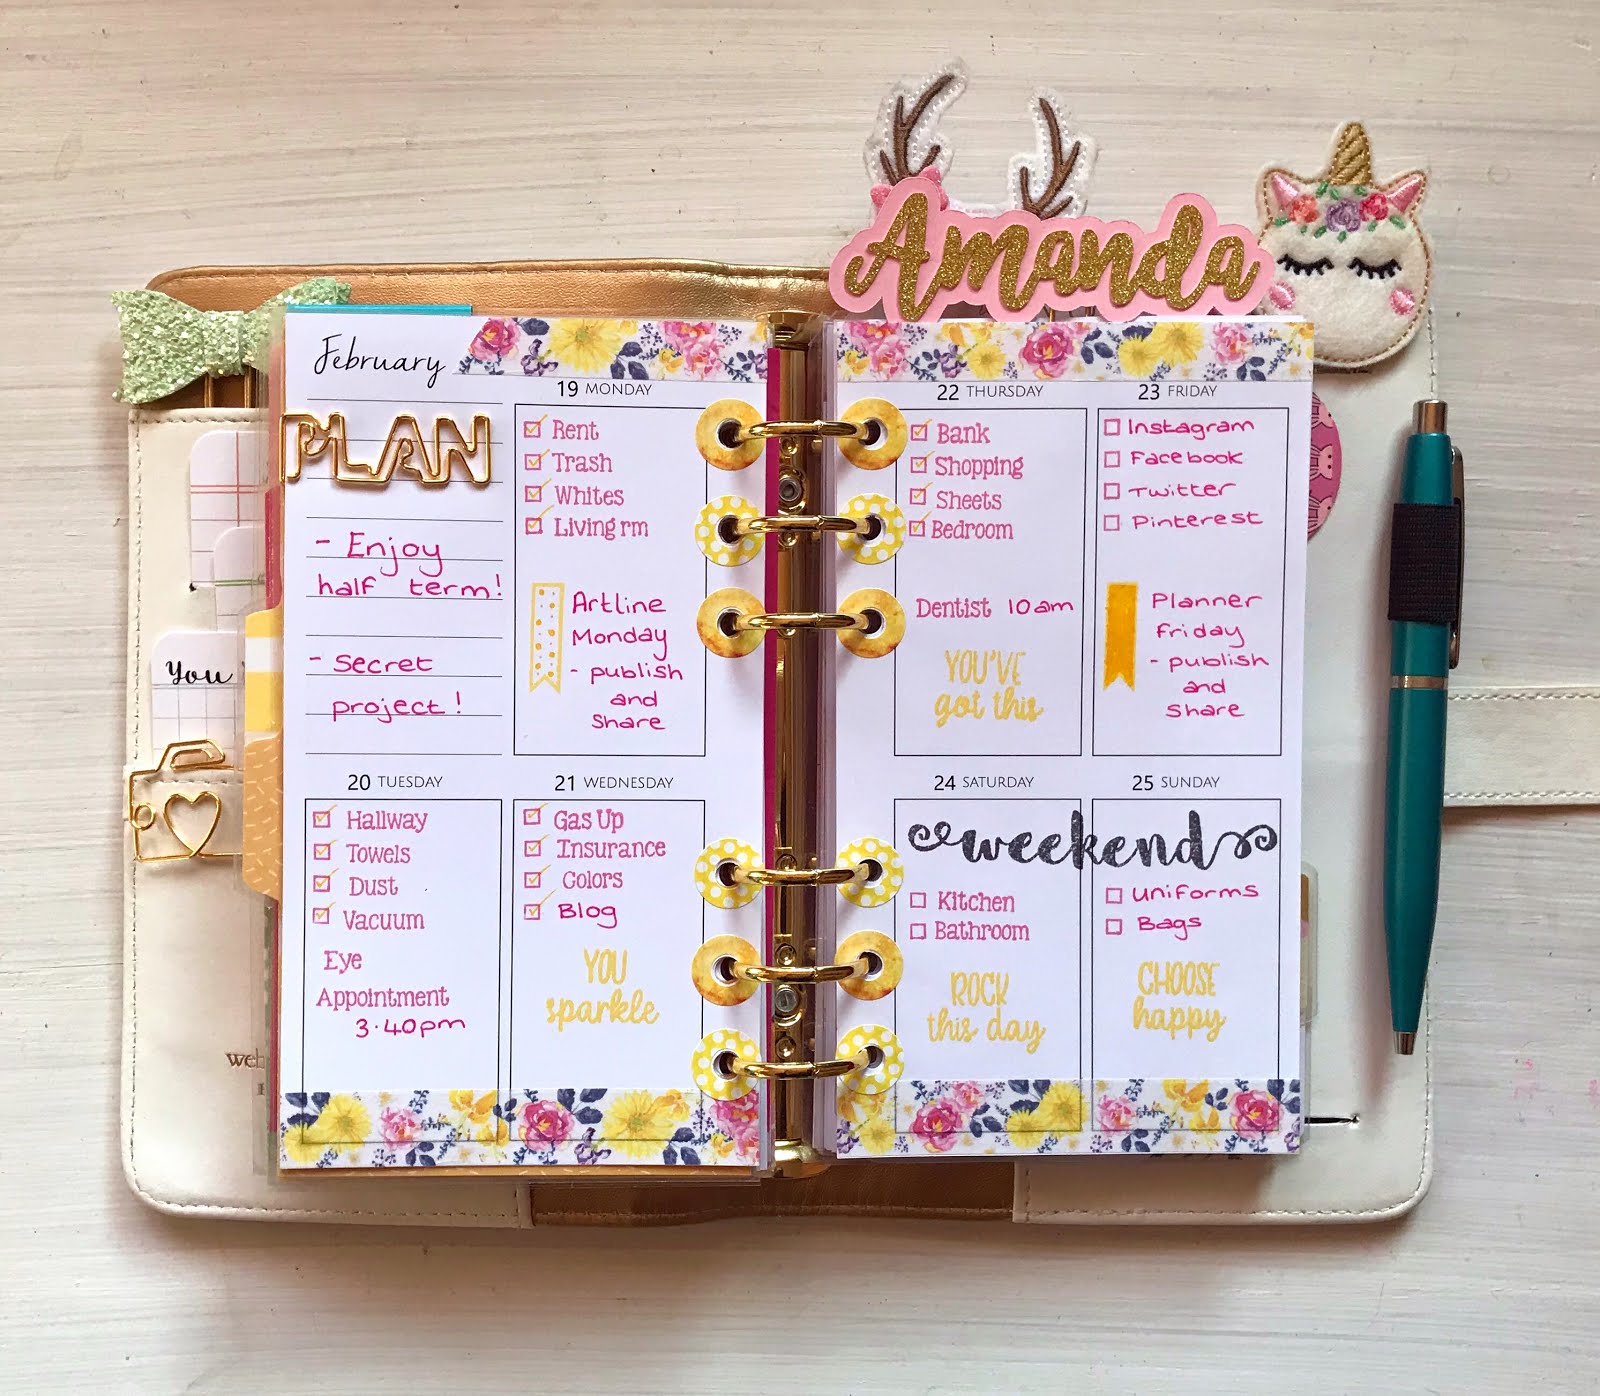 Amanda
February
PLAN
- Enjoy
half term!
- Secret
project!
19 MONDAY
Rent
Trash
Whites
Living rm
Artline
Monday
- publish
and
Share
20 TUESDAY
Hallway
Towels
Dust
Vacuum
Eye
Appointment
3.40pm
21 WEDNESDAY
Gas Up
Insurance
Colors
Blog
YOU
sparkle
22 THURSDAY
Bank
Shopping
Sheets
Bedroom
Dentist 10am
YOU'VE
got this
23 FRIDAY
Instagram
Facebook
Twitter
Pinterest
Planner
Friday
- publish
and
Share
24 SATURDAY
25 SUNDAY
weekend
Kitchen
Bathroom
ROCK
this day
Uniforms
Bags
CHOOSE
happy
You